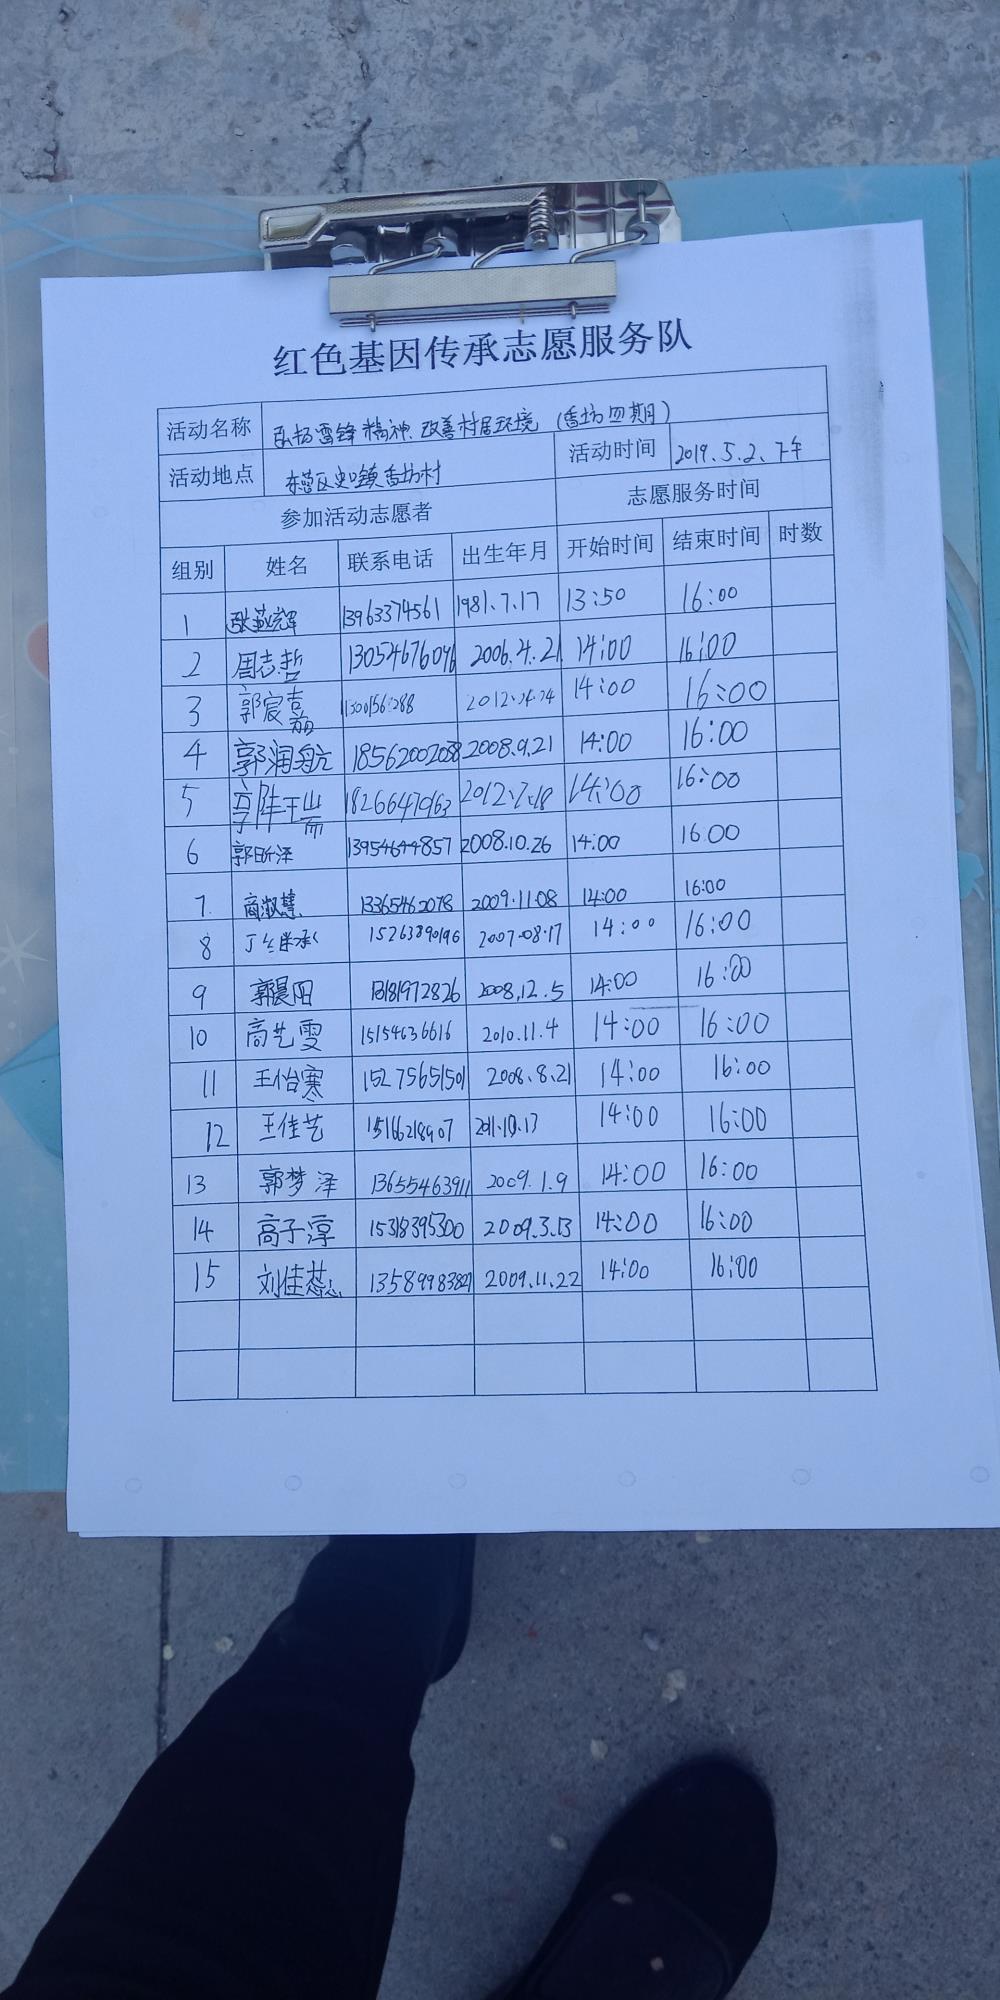 红色基因传承志愿服务队
活动名称 弘扬雷锋精神、改善村居环境 (香坊四期)
活动地点 东营区史口镇香坊村 活动时间 2019.5.2、下午
参加活动志愿者 志愿服务时间
组别 姓名 联系电话 出生年月 开始时间 结束时间 时数
1 张燕辉 13963374561 1981.7.17 13:50 16:00
2 周志哲 13054676096 2006.4.21 14:00 16:00
3 郭宸 14:00 16:00
4 郭润航 18562002088 2008.9.21 14:00 16:00
5 2012.7.18 14:00 16:00
6 郭昕泽 13954644857 2008.10.26 14:00 16:00
7 商淑慧 13365462078 2009.11.08 14:00 16:00
8 15263890196 2007.08.17 14:00 16:00
9 郭晨阳 13181972826 2008.12.5 14:00 16:00
10 高艺雯 15154636616 2010.11.4 14:00 16:00
11 王怡寒 15275651501 2008.8.21 14:00 16:00
12 王佳艺 15166218907 2011.10.13 14:00 16:00
13 郭梦泽 13655463911 2009.1.9 14:00 16:00
14 高子淳 15318395300 2009.3.13 14:00 16:00
15 刘佳蕊 13589983827 2009.11.22 14:00 16:00